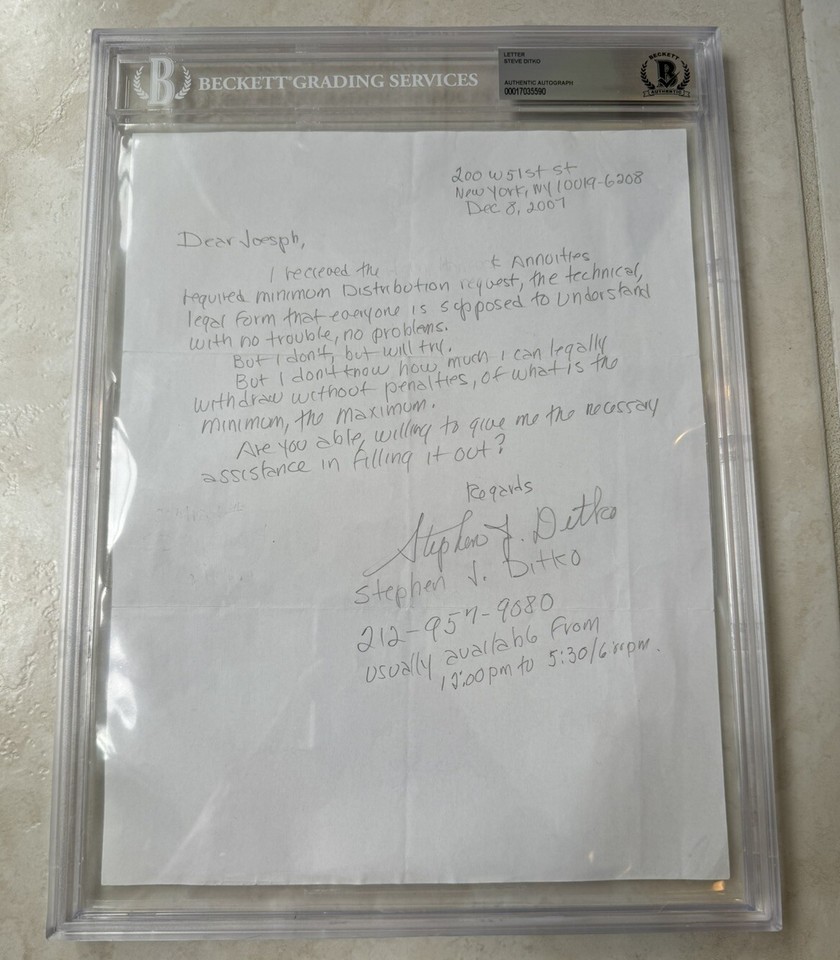 BECKETT GRADING SERVICES
LETTER
STEVE DITKO
AUTHENTIC AUTOGRAPH
00017035590
BECKETT
AUTHENTIC
200 W 51st St
New York, NY 10019-6208
Dec 8, 2007
Dear Joesph,
I recieved the & Annoities
required minimum Distribution request, the technical,
legal form that everyone is sopposed to understand
with no trouble, no problems.
But I don't, but will try.
But I don't know how much I can legally
withdraw without penalties, of what is the
minimum, the maximum.
Are you able, willing to give me the necessary
assistance in filling it out?
Regards
Stephen J. Ditko
Stephen J. Ditko
212-957-9080
usually available from
12:00pm to 5:30/6:00pm.